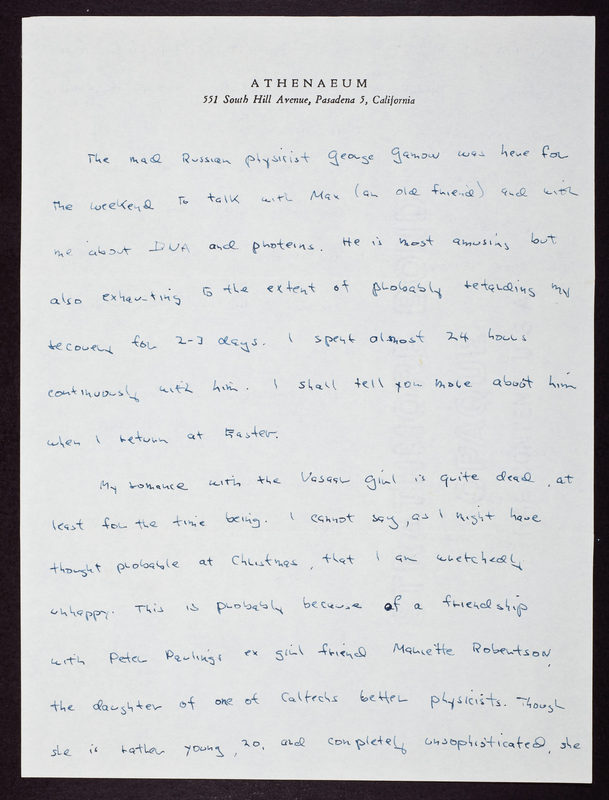 ATHENAEUM
551 South Hill Avenue, Pasadena 5, California
The mad Russian physicist George Gamow was here for
the weekend to talk with Max (an old friend) and with
me about DNA and proteins. He is most amusing but
also exhausting to the extent of probably retarding my
recovery for 2-3 days. I spent almost 24 hours
continuously with him. I shall tell you more about him
when I return at Easter.
My romance with the Vassar girl is quite dead, at
least for the time being. I cannot say, as I might have
thought probable at Christmas, that I am wretchedly
unhappy. This is probably because of a friendship
with Peter Paulings ex girl friend Mariette Robertson,
the daughter of one of Caltechs better physicists. Though
she is rather young, 20, and completely unsophisticated, she